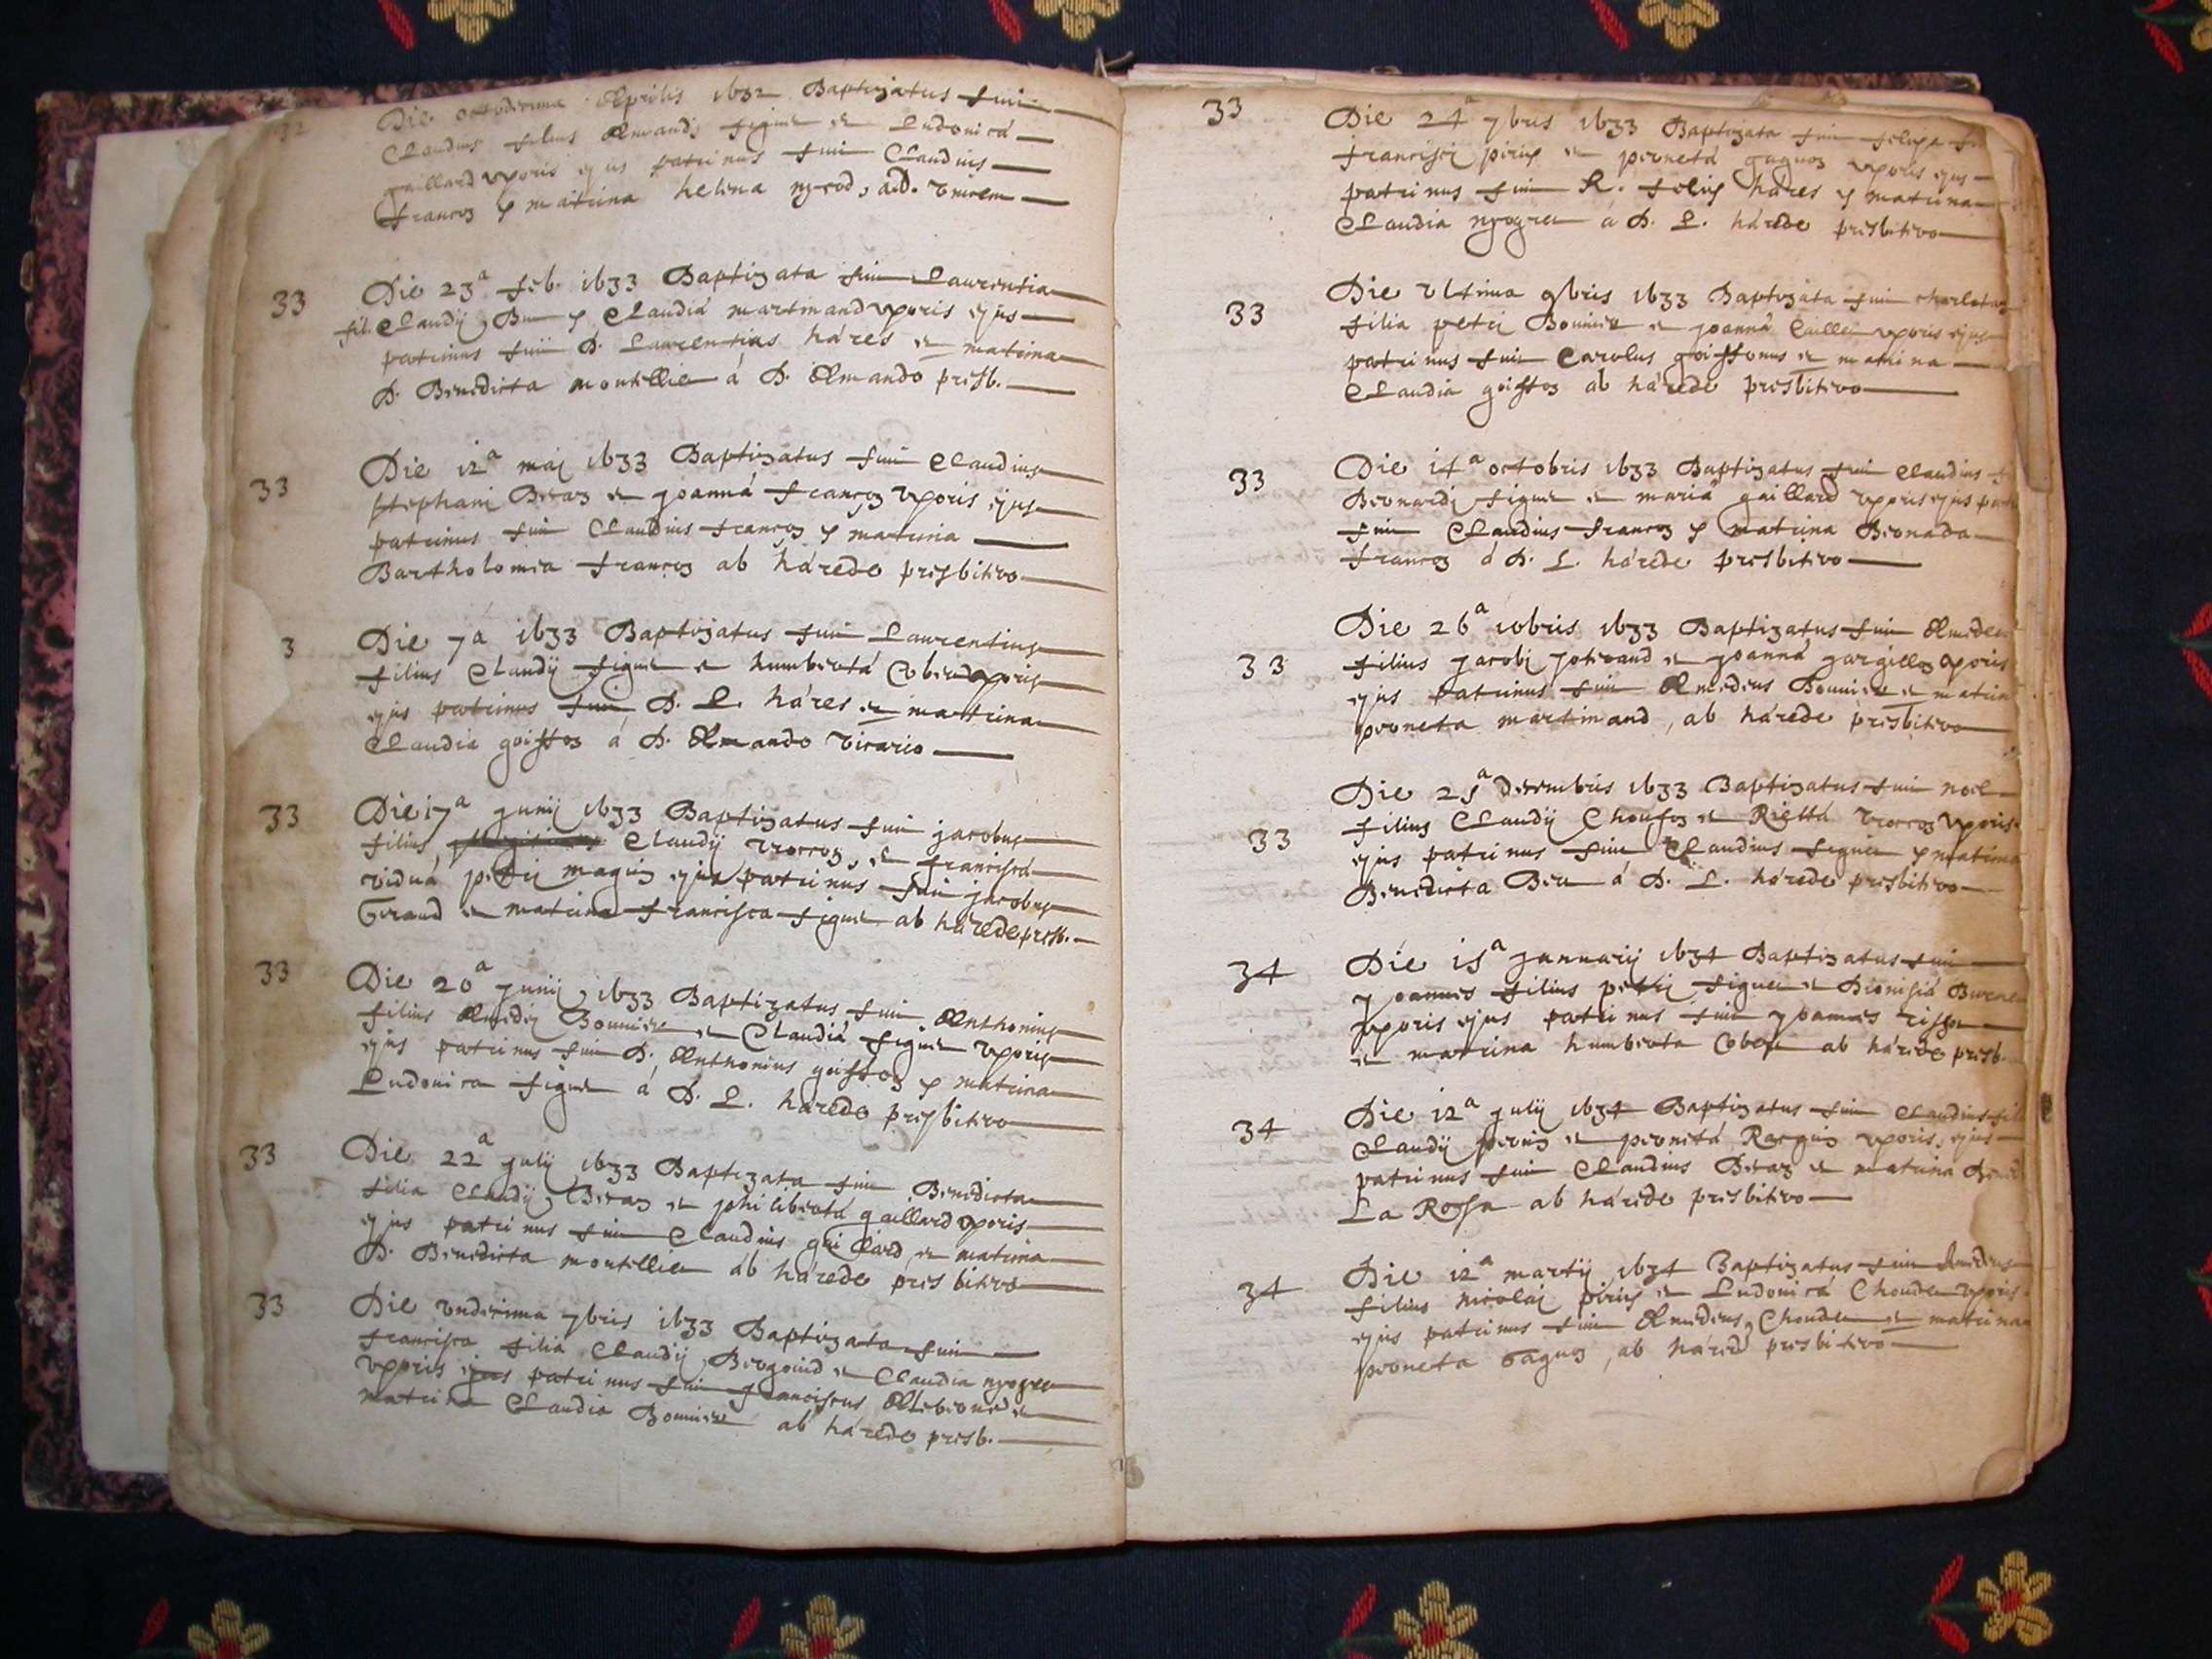 32
Die octodecima Aprilis 1632 Baptizatus fuit
Claudius filius Amandi figuet et Ludovicá
gaillard uxoris ejus patrinus fuit Claudius
francoz et matrina helena nycod, a D. Vincem
33
Die 23a feb. 1633 Baptizata fuit Laurentia
fil. Claudij et Claudiá martinand uxoris ejus
patrinus fuit D. Laurentius háres et matrina
D. Benedicta montellier á D. Amando presb.
33
Die 12a maj 1633 Baptizatus fuit Claudius
stephani Beraz et joanná francoz uxoris ejus
patrinus fuit Claudius francoz et matrina
Bartholomea francoz ab hárede presbitero
3
Die 7a 1633 Baptizatus fuit Laurentius
filius Claudij figuet et humbertá Cobet uxoris
ejus patrinus fuit D. L. háres et matrina
Claudia goistoz á D. Amando vicario
33
Die 17a junij 1633 Baptizatus fuit jacobus
filius Claudij et franciscá
viduá petri magin ejus patrinus fuit jacobus
Geraud et matrina francisca figuet ab hárede presb.
33
Die 20a junij, 1633 Baptizatus fuit Anthonius
filius Amedej Bouvier et Claudiá figuet uxoris
ejus patrinus fuit D. Anthonius goistoz et matrina
Ludovica figuet á D. L. hárede presbitero
33
Die 22a julij 1633 Baptizata fuit Benedicta
filia Claudij Beraz et philibertá gaillard uxoris
ejus patrinus fuit Claudius gaillard et matrina
D. Benedicta montellier ab hárede presbitero
33
Die undecima 7bris 1633 Baptizata fuit
francisca filia Claudij Bergoind et Claudia
uxoris ejus patrinus fuit franciscus et
matrina Claudia Bouvier ab hárede presb.
33
Die 24a 7bris 1633 Baptizata fuit
francisci et pernetá gagnoz uxoris ejus
patrinus fuit R. felix háres et matrina
Claudia á D. L. hárede presbitero
33
Die ultima 9bris 1633 Baptizata fuit charlota
filia petri Bouvier et joanná uxoris ejus
patrinus fuit Carolus goistonus et matrina
Claudia goistoz ab hárede presbitero
33
Die 14a octobris 1633 Baptizatus fuit Claudius f
Bernardi figuet et mariá gaillard uxoris ejus pat
fuit Claudius francoz et matrina Bernada
francoz á D. L. hárede presbitero
33
Die 26a 10bris 1633 Baptizatus fuit Amedeus
filius jacobi joterand et joanná gargilloz uxoris
ejus patrinus fuit Amedeus Bouvier et matrin
perneta martinand, ab hárede presbitero
33
Die 25a decembris 1633 Baptizatus fuit noel
filius Claudij et uxoris
ejus patrinus fuit Claudius figuet et matrina
Benedicta á D. L. hárede presbitero
34
Die 15a januarij 1634 Baptizatus fuit
joannes filius petri figuet et Dionisiá
uxoris ejus patrinus fuit joannes
et matrina humberta Cobet ab hárede presb.
34
Die 12a julij 1634 Baptizatus fuit Claudius fil
Claudij et pernetá uxoris ejus
patrinus fuit Claudius Beraz et matrina
La Rossa ab hárede presbitero
34
Die 12a martij 1634 Baptizatus fuit Amedeus
filius nicolaj et Ludovicá Choudet uxoris
ejus patrinus fuit Amedeus Choudet et matrina
perneta gagnoz, ab hárede presbitero